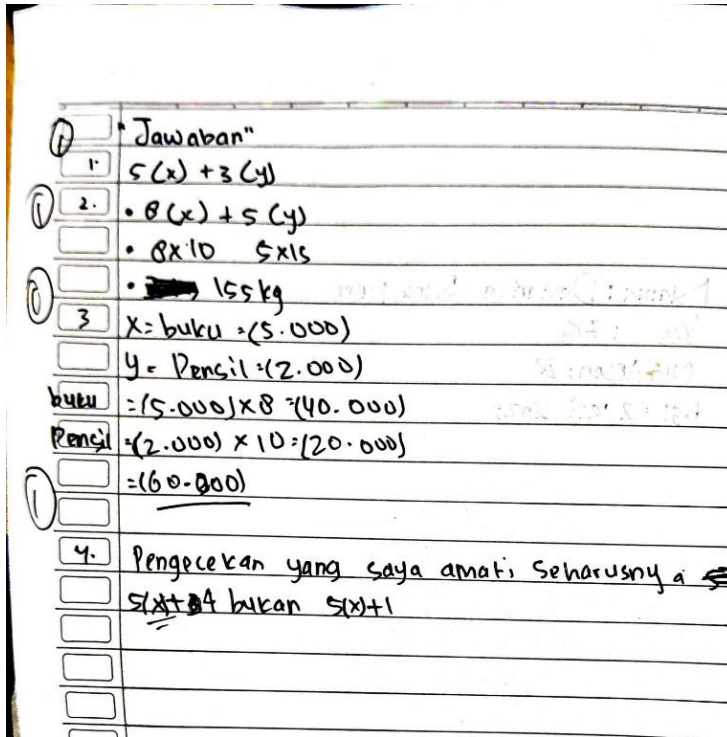 "Jawaban"
1. 5(x) + 3(y)
2. • 8(x) + 5(y)
• 8x10 5x15
• 155 kg
3 x = buku = (5.000)
y = Pensil = (2.000)
buku = (5.000) x 8 = (40.000)
Pensil = (2.000) x 10 = (20.000)
= (60.000)
4. Pengecekan yang saya amati, seharusnya
5(x)+4 bukan 5(x)+1